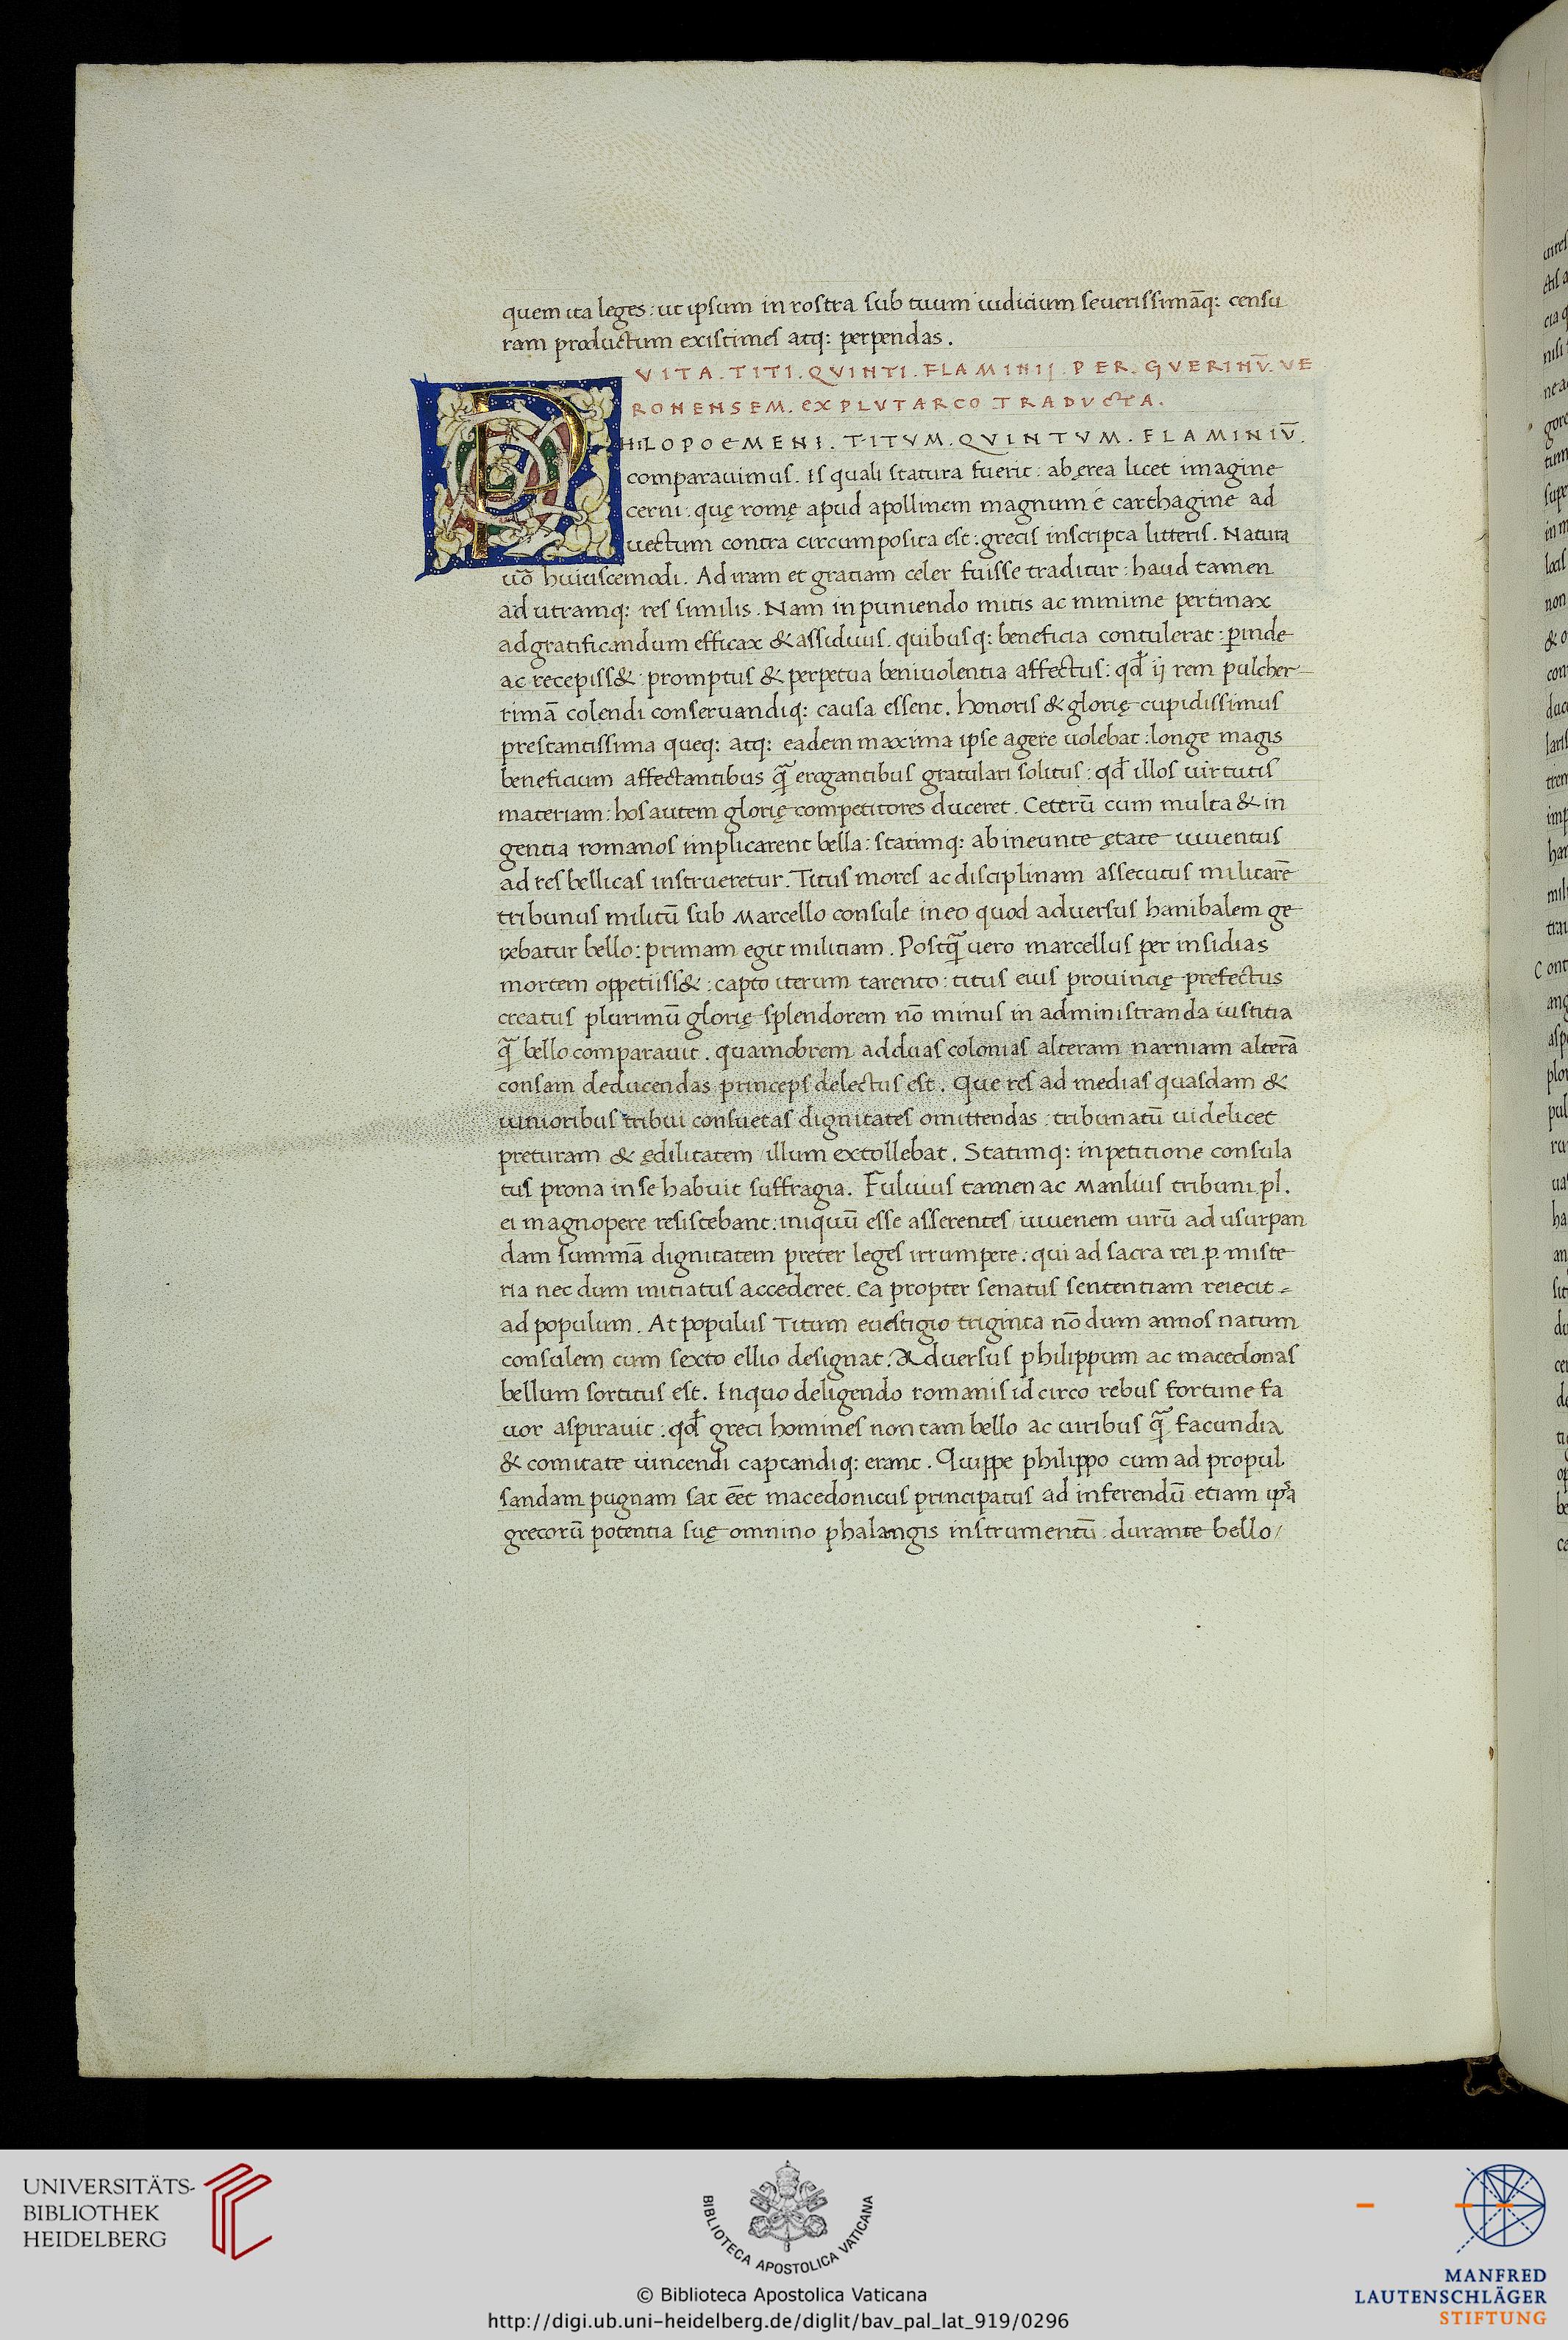 quem ita leges: ut ipsum in rostra sub tuum iudicium seuerissimāq: censu
ram productum existimes atq: perpendas.
VITA. TITI. QVINTI. FLAMINIJ. PER. GVERINV̄. VE
RONENSEM. EX PLVTARCO TRADVCTA.
PHILOPOEMENI. TITVM. QVINTVM. FLAMINIV̄.
comparauimus. Is quali statura fuerit: ab ęrea licet imagine
cerni. quę romę apud apollinem magnum é carthagine ad
uectum contra circumposita est: grecis inscripta litteris. Natura
uō huiuscemodi. Ad iram et gratiam celer fuisse traditur: haud tamen
ad utramq: res similis. Nam in puniendo mitis ac minime pertinax
ad gratificandum efficax & assiduus. quibusq: beneficia contulerat: ꝑinde
ac recepiss& promptus & perpetua beniuolentia affectus: qđ ij rem pulcher
rimā colendi conseruandiq: causa essent. honoris & glorię cupidissimus
prestantissima queq: atq: eadem maxima ipse agere uolebat: longe magis
beneficium affectantibus q̄ erogantibus gratulari solitus: qđ illos uirtutis
materiam: hos autem glorię competitores duceret. Ceterū cum multa & in
gentia romanos implicarent bella: statimq: ab ineunte ętate iuuentus
ad res bellicas instrueretur. Titus mores ac disciplinam assecutus militarē
tribunus militū sub Marcello consule in eo quod aduersus hanibalem ge
rebatur bello: primam egit militiam. Postq̄ uero marcellus per insidias
mortem oppetiiss&: capto iterum tarento: titus eius prouincię prefectus
creatus plurimū glorię splendorem nō minus in administranda iustitia
q̄ bello comparauit. quamobrem ad duas colonias alteram narniam alterā
consam deducendas princeps delectus est. Que res ad medias quasdam &
iunioribus tribui consuetas dignitates omittendas: tribunatū uidelicet
preturam & ędilitatem / illum extollebat. Statimq: in petitione consula
tus prona in se habuit suffragia. Fuluius tamen ac Manlius tribuni pl.
ei magnopere resistebant: iniquū esse asserentes / iuuenem uirū ad usurpan
dam summā dignitatem preter leges irrumpere: qui ad sacra rei .p. miste
ria nec dum initiatus accederet. Ea propter senatus sententiam reiecit
ad populum. At populus Titum euestigio triginta nō dum annos natum
consulem cum sexto ellio designat. Aduersus philippum ac macedonas
bellum sortitus est. In quo deligendo romanis id circo rebus fortune fa
uor aspirauit: qđ greci homines non tam bello ac uiribus q̄ facundia
& comitate uincendi captandiq: erant. Quippe philippo cum ad propul
sandam pugnam sat eēt macedonicus principatus ad inferendū etiam ip̄a
grecorū potentia suę omnino phalangis instrumentū. durante bello /
UNIVERSITÄTS-
BIBLIOTHEK
HEIDELBERG
BIBLIOTECA APOSTOLICA VATICANA
© Biblioteca Apostolica Vaticana
http://digi.ub.uni-heidelberg.de/diglit/bav_pal_lat_919/0296
MANFRED
LAUTENSCHLÄGER
STIFTUNG